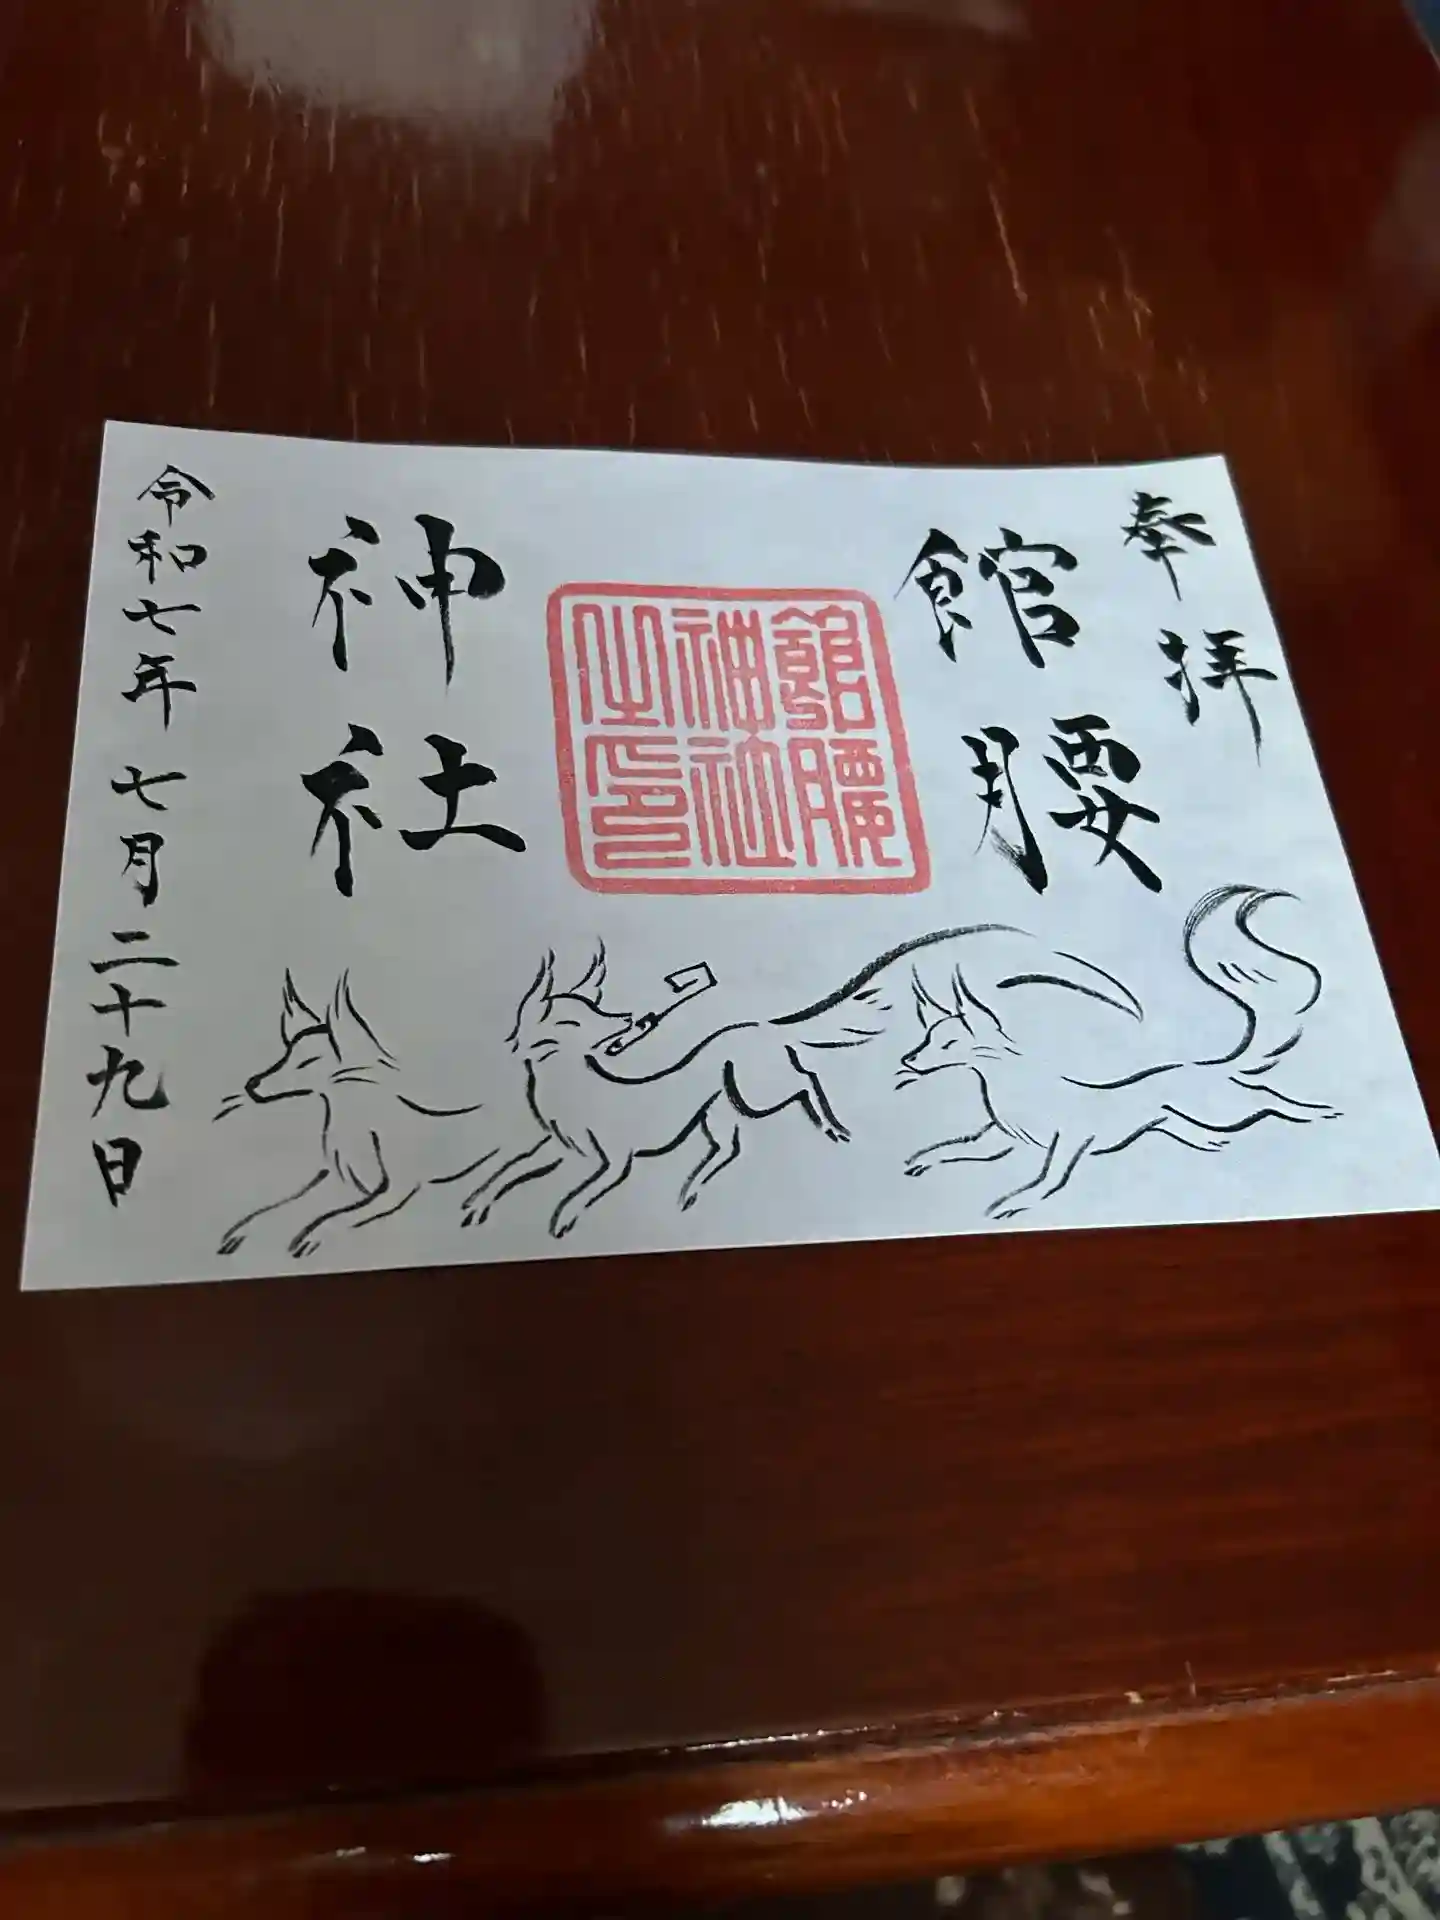 奉拝
館腰
館腰
神社
之印
神社
令和七年七月二十九日